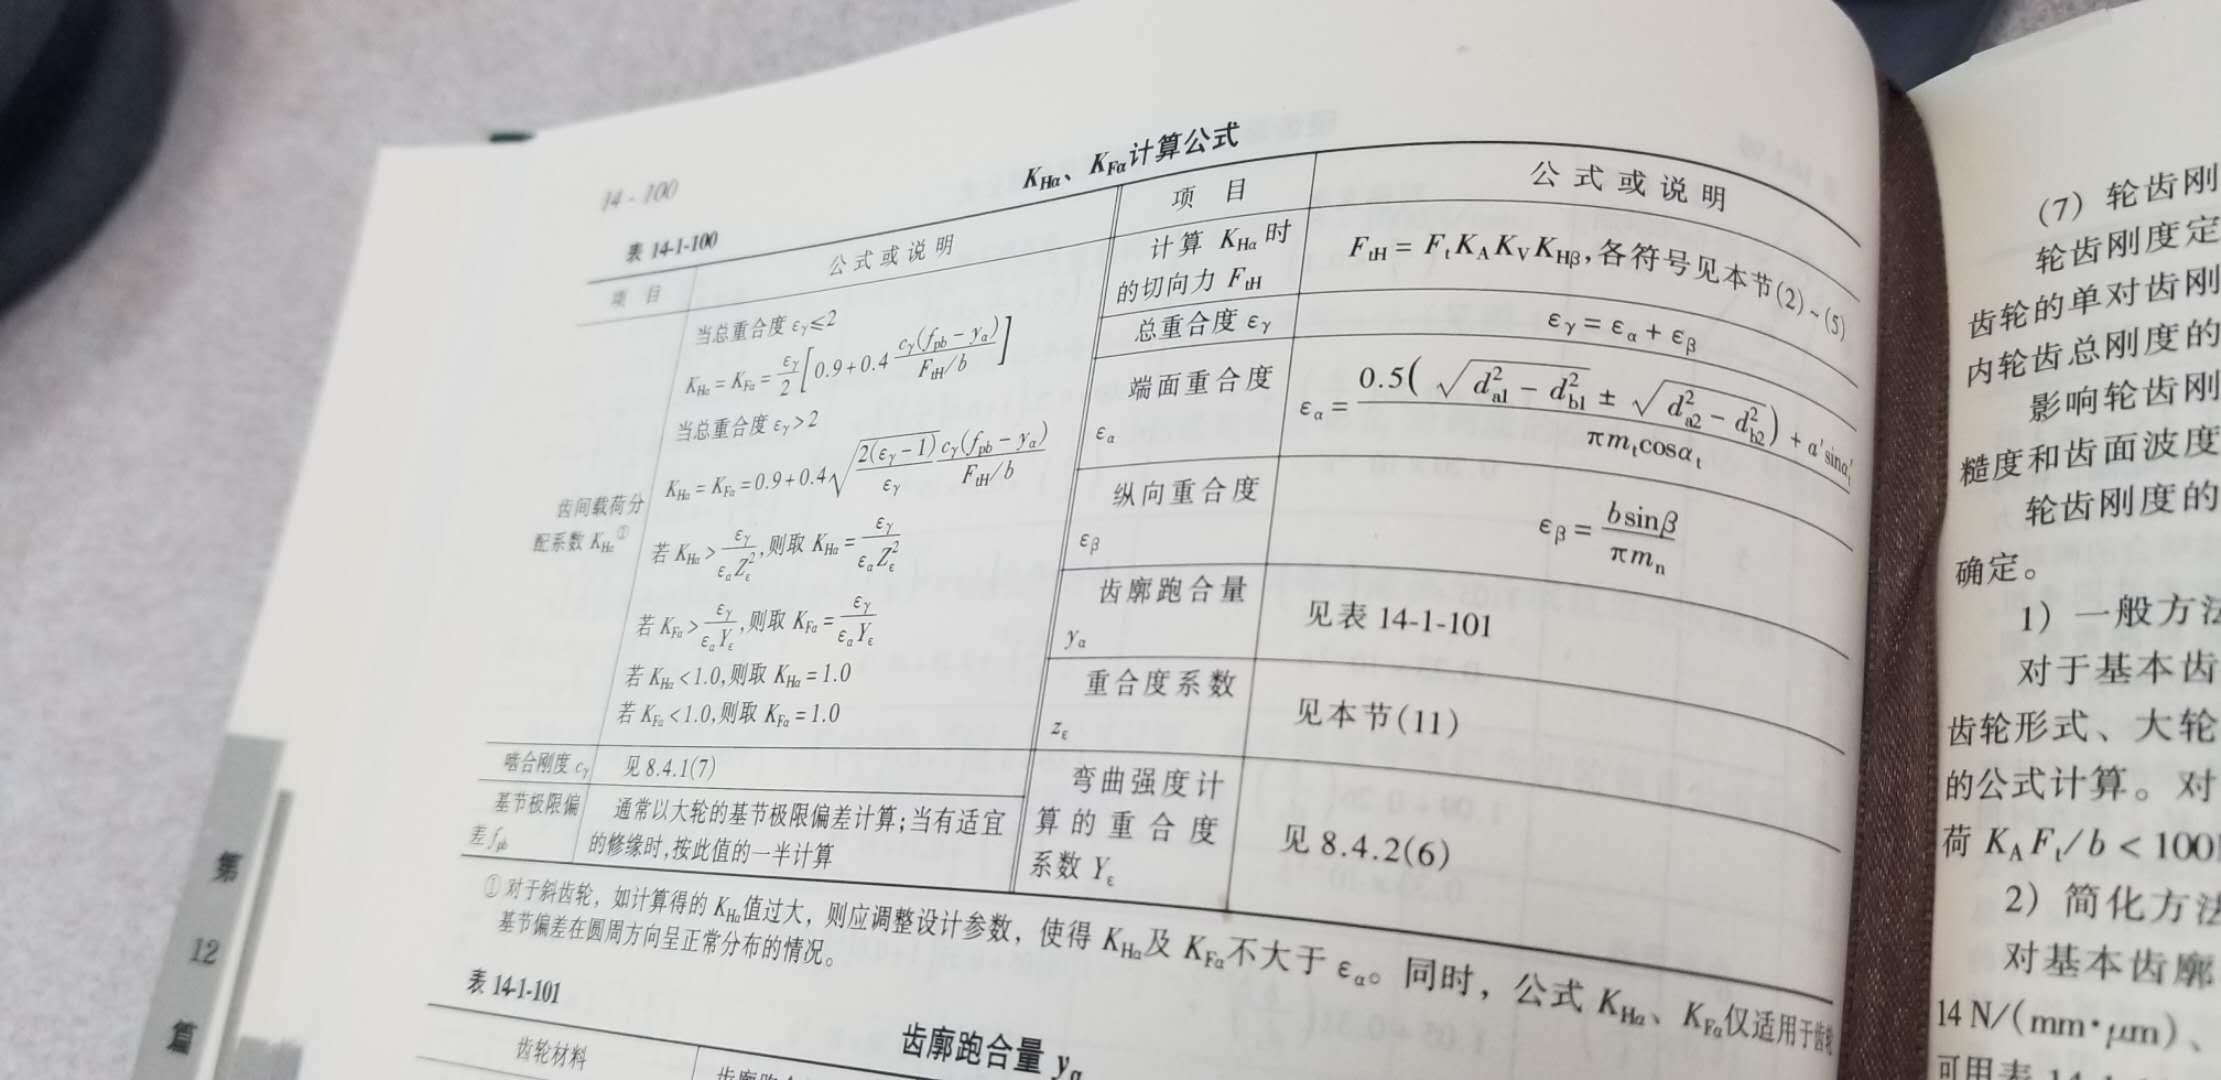 14-100
表 14-1-100
K_Hα、K_Fα计算公式
项 目
公式或说明
项 目
公式或说明
齿间载荷分
配系数 K_Hα①
当总重合度 ε_γ≤2
K_Hα = K_Fα = ε_γ/2 [0.9+0.4 c_γ(f_pb − y_α)/(F_tH/b)]
当总重合度 ε_γ>2
K_Hα = K_Fα = 0.9+0.4√(2(ε_γ−1)/ε_γ) c_γ(f_pb − y_α)/(F_tH/b)
若 K_Hα > ε_γ/(ε_α Z_ε²),则取 K_Hα = ε_γ/(ε_α Z_ε²)
若 K_Fα > ε_γ/(ε_α Y_ε),则取 K_Fα = ε_γ/(ε_α Y_ε)
若 K_Hα <1.0,则取 K_Hα = 1.0
若 K_Fα <1.0,则取 K_Fα = 1.0
啮合刚度 c_γ
见 8.4.1(7)
基节极限偏
差 f_pb
通常以大轮的基节极限偏差计算;当有适宜
的修缘时,按此值的一半计算
计算 K_Hα 时
的切向力 F_tH
F_tH = F_t K_A K_V K_Hβ,各符号见本节(2)~(5)
总重合度 ε_γ
ε_γ = ε_α + ε_β
端面重合度
ε_α
ε_α = 0.5(√(d_a1² − d_b1²) ± √(d_a2² − d_b2²)) + a′sinα′_t / πm_t cosα_t
纵向重合度
ε_β
ε_β = b sinβ / πm_n
齿廓跑合量
y_α
见表 14-1-101
重合度系数
z_ε
见本节(11)
弯曲强度计
算的重合度
系数 Y_ε
见 8.4.2(6)
① 对于斜齿轮，如计算得的 K_Hα值过大，则应调整设计参数，使得 K_Hα及 K_Fα不大于 ε_α。同时，公式 K_Hα、K_Fα仅适用于齿轮
基节偏差在圆周方向呈正常分布的情况。
表 14-1-101
齿廓跑合量 y_α
齿轮材料
第
12
篇
(7) 轮齿刚
轮齿刚度定
齿轮的单对齿刚
内轮齿总刚度的
影响轮齿刚
糙度和齿面波度
轮齿刚度的
确定。
1) 一般方法
对于基本齿
齿轮形式、大轮
的公式计算。对
荷 K_A F_t/b < 100
2) 简化方法
对基本齿廓
14 N/(mm·μm)、
可用表 14-1